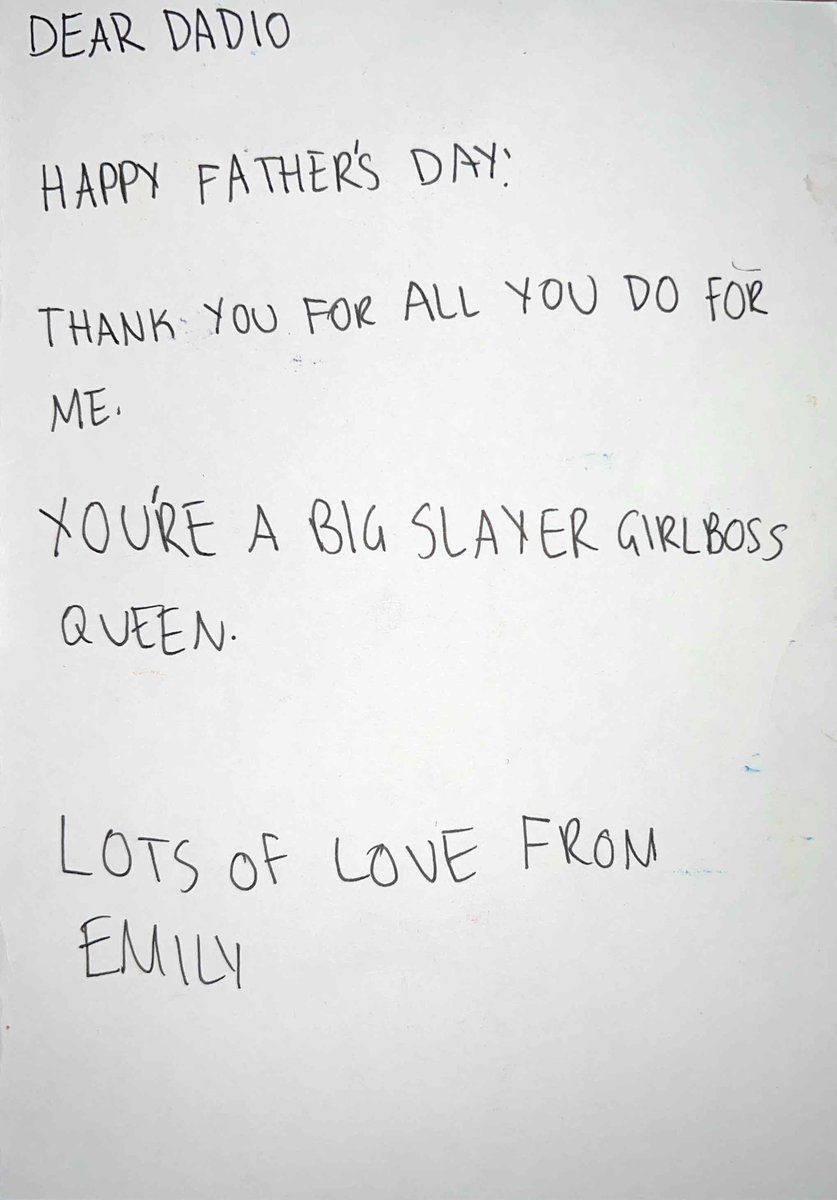 DEAR DADIO
HAPPY FATHER'S DAY!
THANK YOU FOR ALL YOU DO FOR
ME.
YOU'RE A BIG SLAYER GIRLBOSS
QUEEN.
LOTS OF LOVE FROM
EMILY